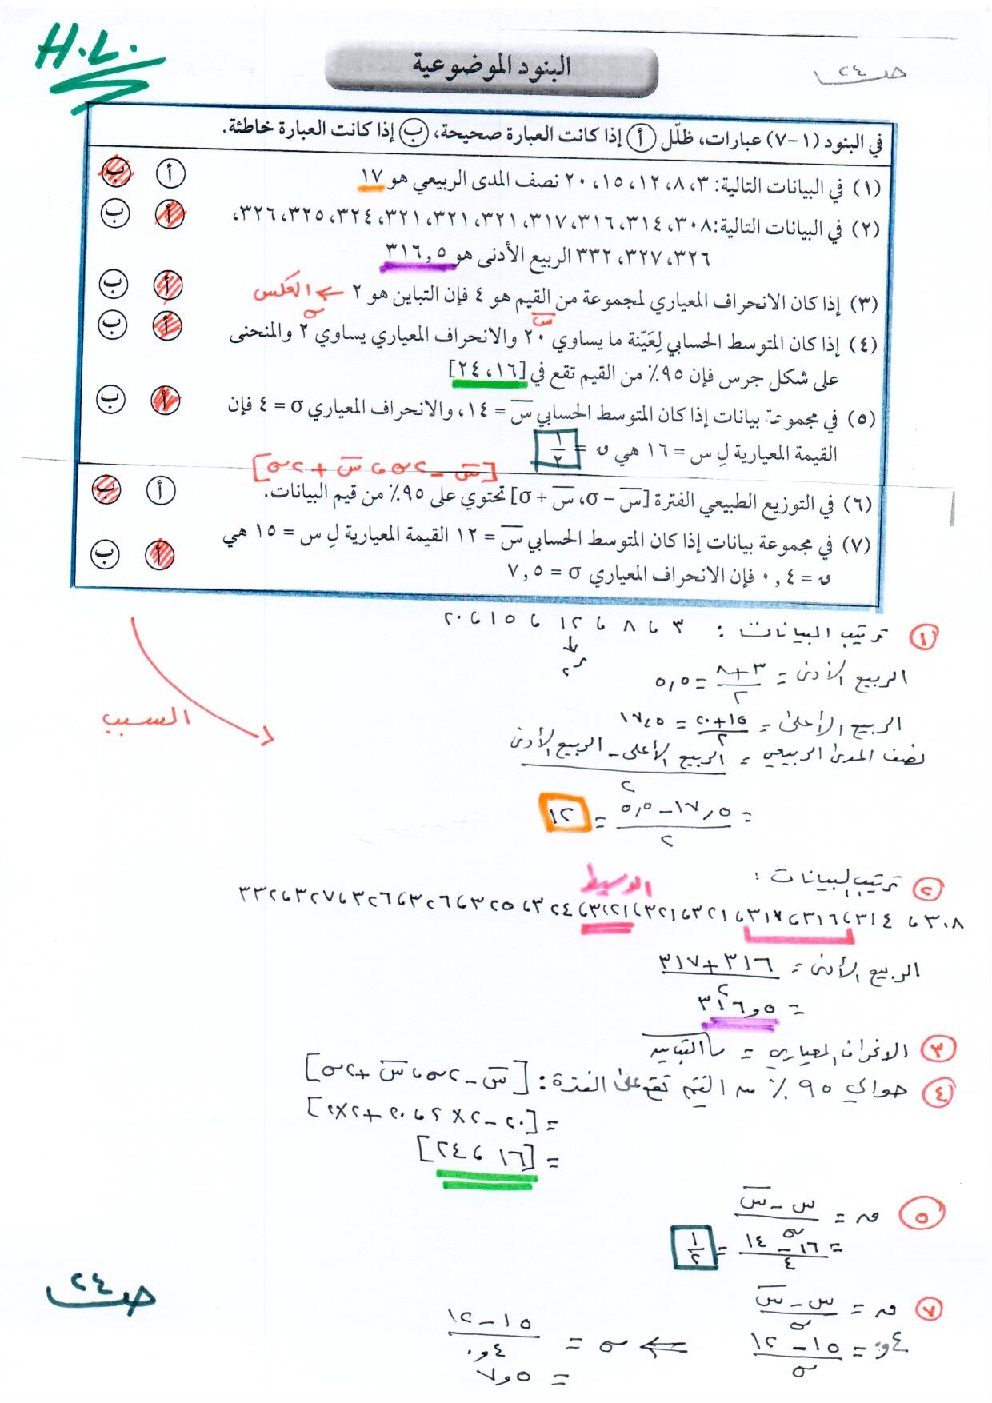 H.L.
صـ ٢٤
البنود الموضوعية
في البنود (١-٧) عبارات، ظلّل أ إذا كانت العبارة صحيحة، ب إذا كانت العبارة خاطئة.
(١) في البيانات التالية: ٣، ٨، ١٢، ١٥، ٢٠ نصف المدى الربيعي هو ١٧ أ ب
(٢) في البيانات التالية: ٣٠٨، ٣١٤، ٣١٦، ٣١٧، ٣٢١، ٣٢١، ٣٢١، ٣٢٤، ٣٢٥، ٣٢٦، أ ب
٣٢٦، ٣٢٧، ٣٣٢ الربيع الأدنى هو ٣١٦,٥
(٣) إذا كان الانحراف المعياري لمجموعة من القيم هو ٤ فإن التباين هو ٢ ← العكس أ ب
س̄ σ
(٤) إذا كان المتوسط الحسابي لِعَيّنة ما يساوي ٢٠ والانحراف المعياري يساوي ٢ والمنحنى أ ب
على شكل جرس فإن ٩٥٪ من القيم تقع في [١٦، ٢٤]
(٥) في مجموعة بيانات إذا كان المتوسط الحسابي س̄ = ١٤، والانحراف المعياري σ = ٤ فإن أ ب
القيمة المعيارية لِ س = ١٦ هي ن = ١/٢
[س̄ - ٢σ ، س̄ + ٢σ]
(٦) في التوزيع الطبيعي الفترة [س̄ - σ، س̄ + σ] تحتوي على ٩٥٪ من قيم البيانات. أ ب
(٧) في مجموعة بيانات إذا كان المتوسط الحسابي س̄ = ١٢ القيمة المعيارية لِ س = ١٥ هي أ ب
ن = ٠,٤ فإن الانحراف المعياري σ = ٧,٥
السبب
١ ترتيب البيانات : ٣ ، ٨ ، ١٢ ، ١٥ ، ٢٠
↓
ر٢
الربيع الأدنى = (٣ + ٨)/٢ = ٥,٥
الربيع الأعلى = (١٥ + ٢٠)/٢ = ١٧,٥
نصف المدى الربيعي = (الربيع الأعلى - الربيع الأدنى)/٢
= (١٧,٥ - ٥,٥)/٢ = ١٢
٢ ترتيب البيانات :
الوسيط
٣٠٨ ، ٣١٤ ، ٣١٦ ، ٣١٧ ، ٣٢١ ، ٣٢١ ، ٣٢١ ، ٣٢٤ ، ٣٢٥ ، ٣٢٦ ، ٣٢٦ ، ٣٢٧ ، ٣٣٢
الربيع الأدنى = (٣١٦ + ٣١٧)/٢
= ٣١٦,٥
٣ الانحراف المعياري = √التباين
٤ حوالي ٩٥ ٪ من القيم تقع على الفترة : [س̄ - ٢σ ، س̄ + ٢σ]
= [٢٠ - ٢×٢ ، ٢٠ + ٢×٢]
= [١٦ ، ٢٤]
٥ ن = (س - س̄)/σ
= (١٦ - ١٤)/٤ = ١/٢
٧ ن = (س - س̄)/σ
٠,٤ = (١٥ - ١٢)/σ ⇐ σ = (١٥ - ١٢)/٠,٤
= ٧,٥
صـ ٢٤